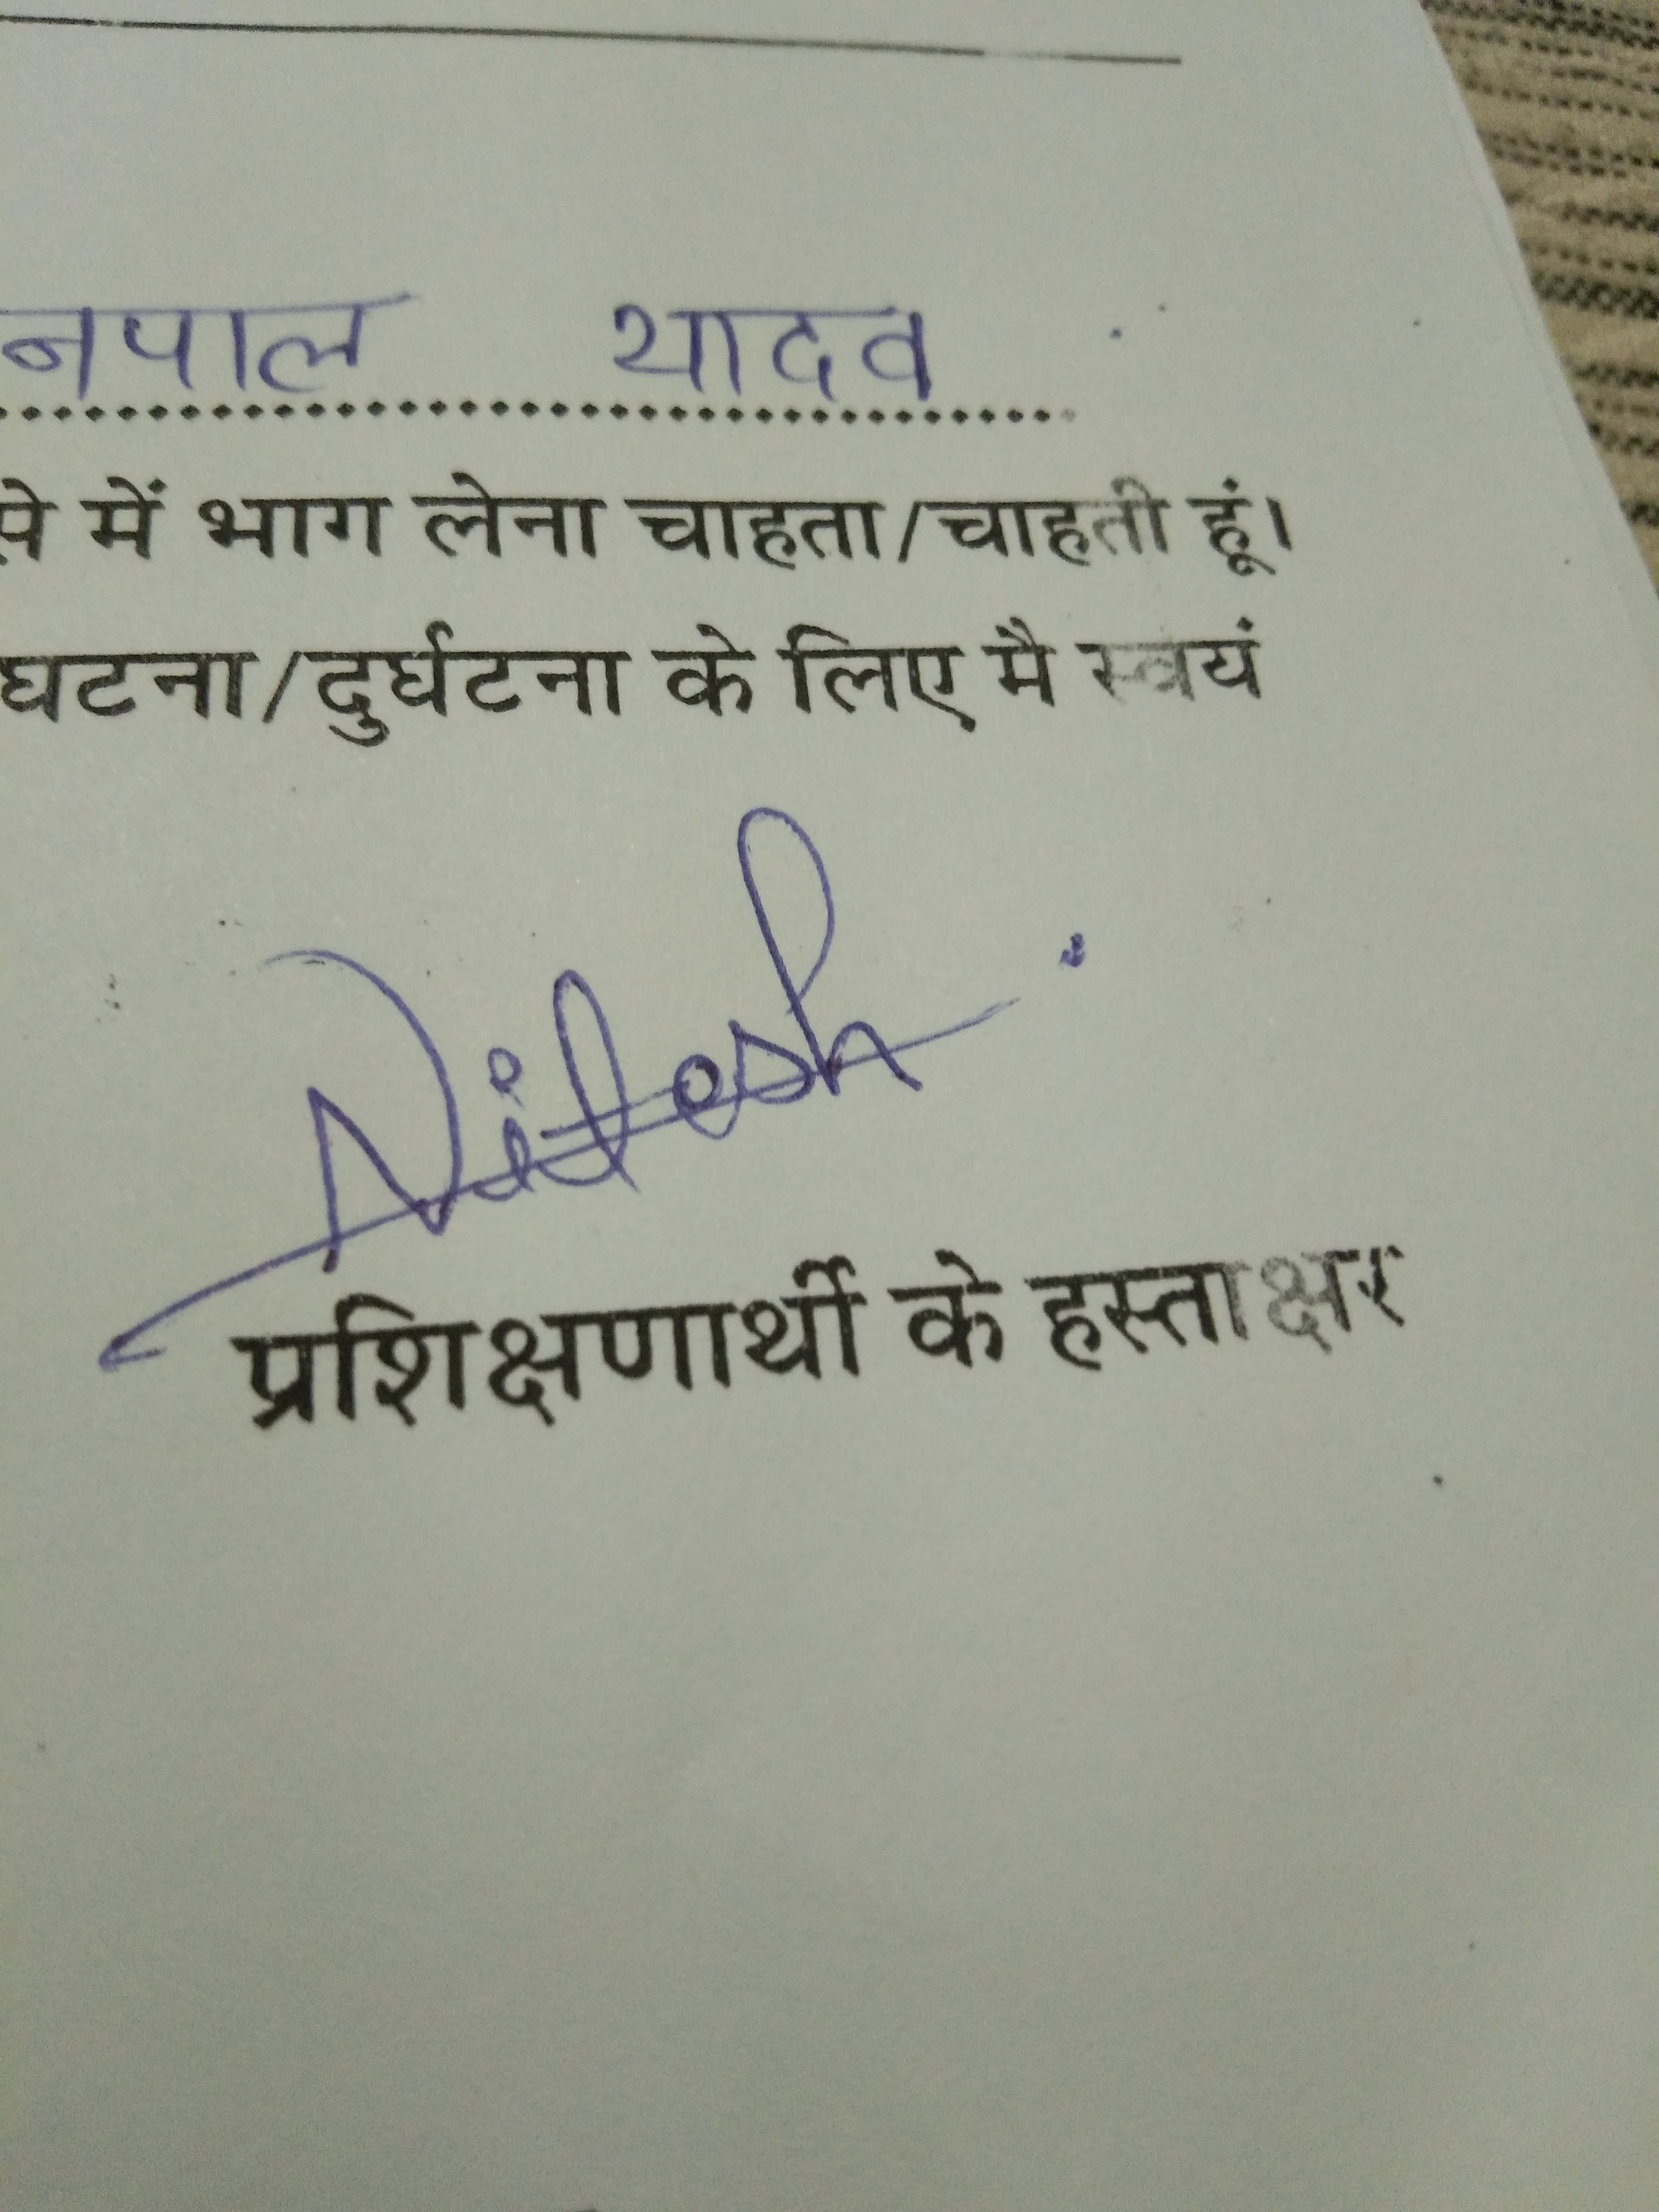 नपाल यादव
से में भाग लेना चाहता/चाहती हूं।
घटना/दुर्घटना के लिए मै स्वयं
Nitesh
प्रशिक्षणार्थी के हस्ताक्षर